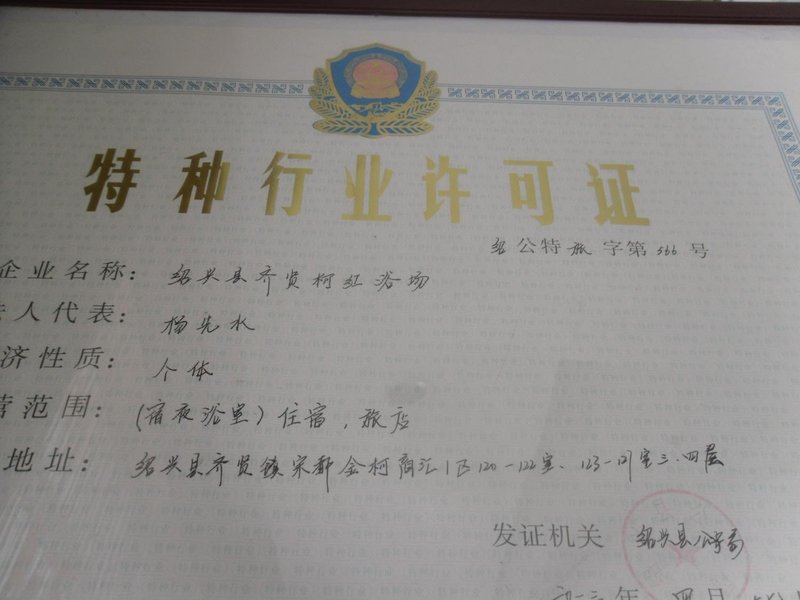 特种行业许可证
绍公特旅字第566号
企业名称：绍兴县齐贤柯红浴场
人代表：杨先水
济性质：个体
营范围：（宿夜浴室）住宿，旅店
地址：绍兴县齐贤镇宋都金柯商汇1区120-122室、123-室三、四层
发证机关 绍兴县公安局
年 四月